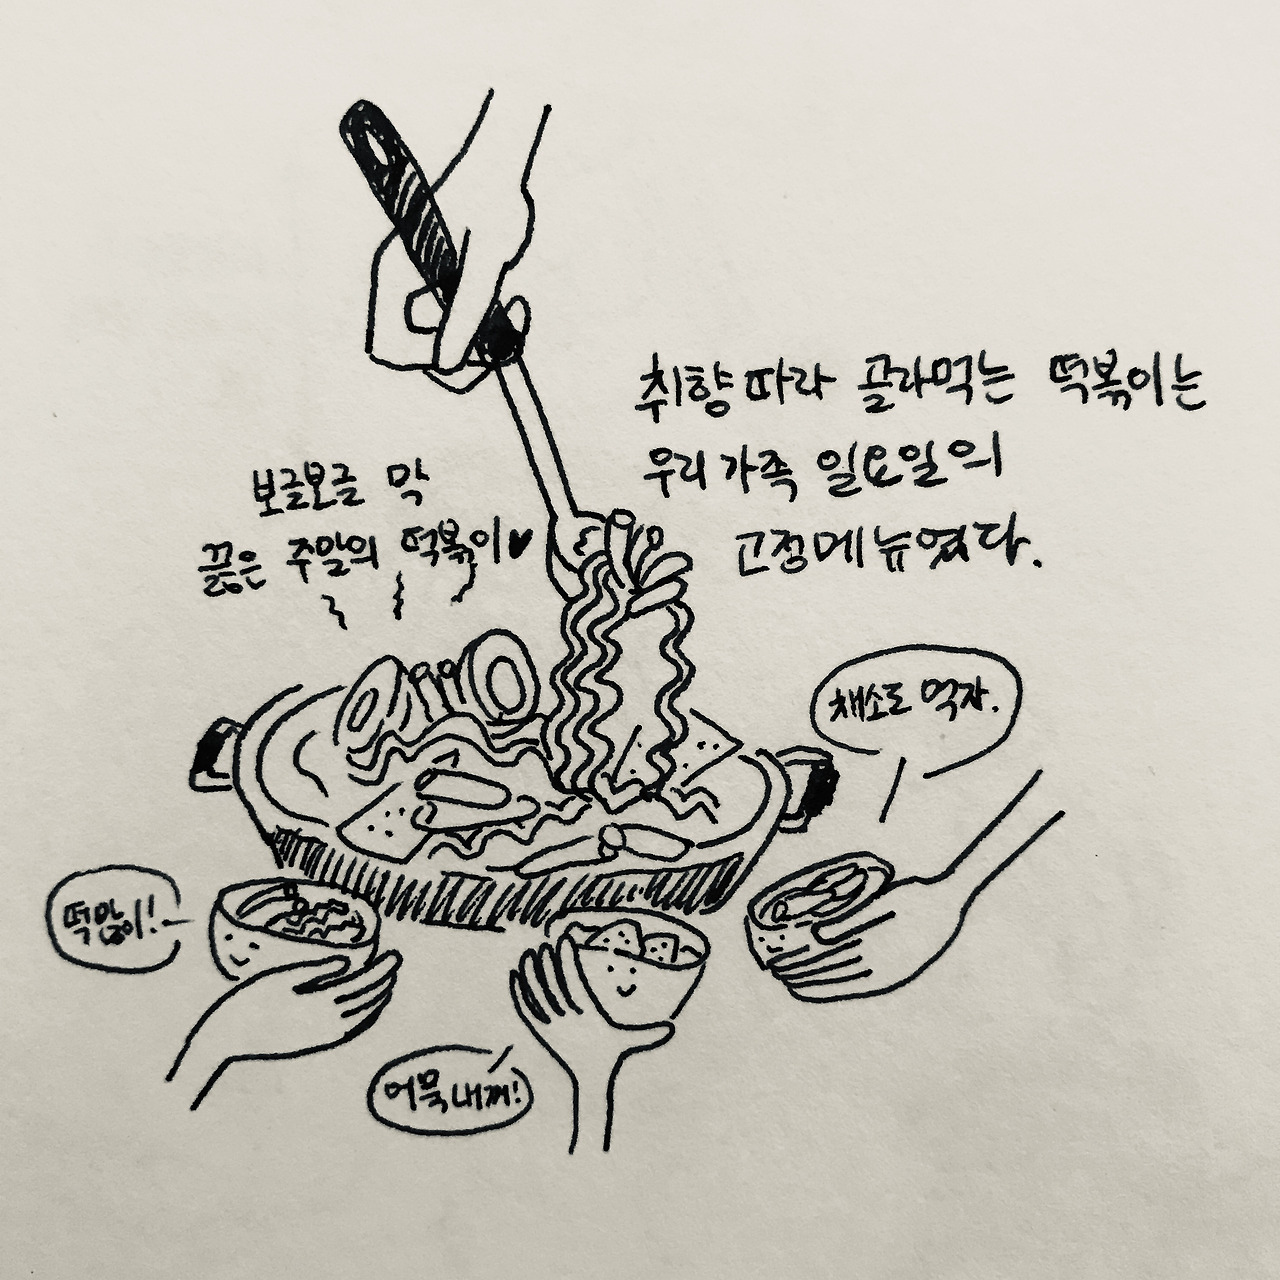 취향따라 골라먹는 떡볶이는
우리 가족 일요일의
고정메뉴였다.
보글보글 막
끓은 주말의 떡볶이♥
채소도 먹자.
떡많이!
어묵내꺼!